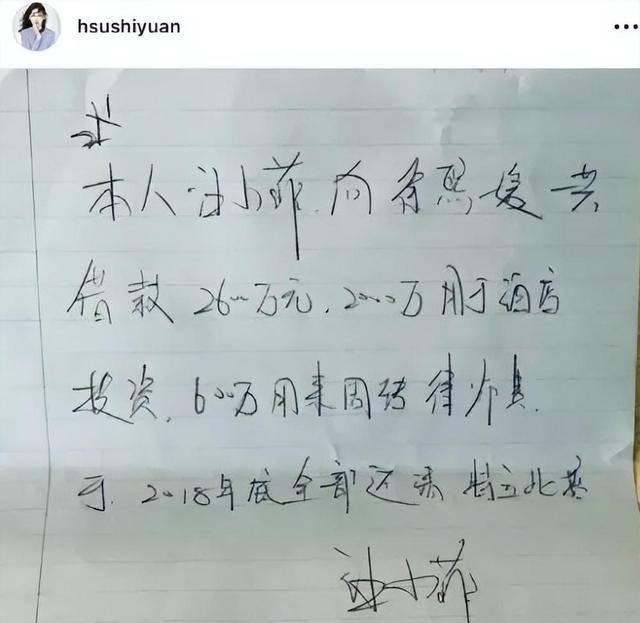 hsushiyuan
本人汪小菲向徐熙媛共
借款2600万元,2000万用于酒店
投资,600万用来周转律师费.
于2018年底全部还清 特立此据
汪小菲